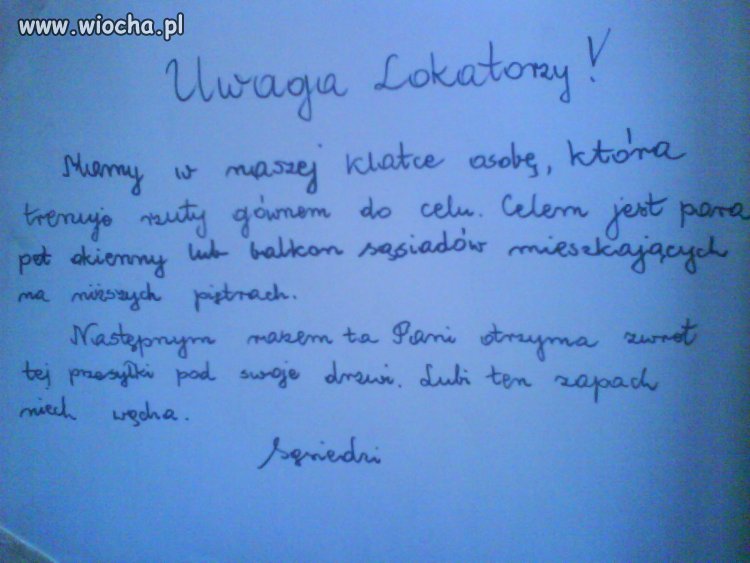 www.wiocha.pl
Uwaga Lokatorzy!
Mamy w naszej klatce osobę, która
trenuje rzuty gównem do celu. Celem jest para
pet okienny lub balkon sąsiadów mieszkających
na niższych piętrach.
Następnym razem ta Pani otrzyma zwrot
tej przesyłki pod swoje drzwi. Lubi ten zapach
niech wącha.
Sąsiedzi